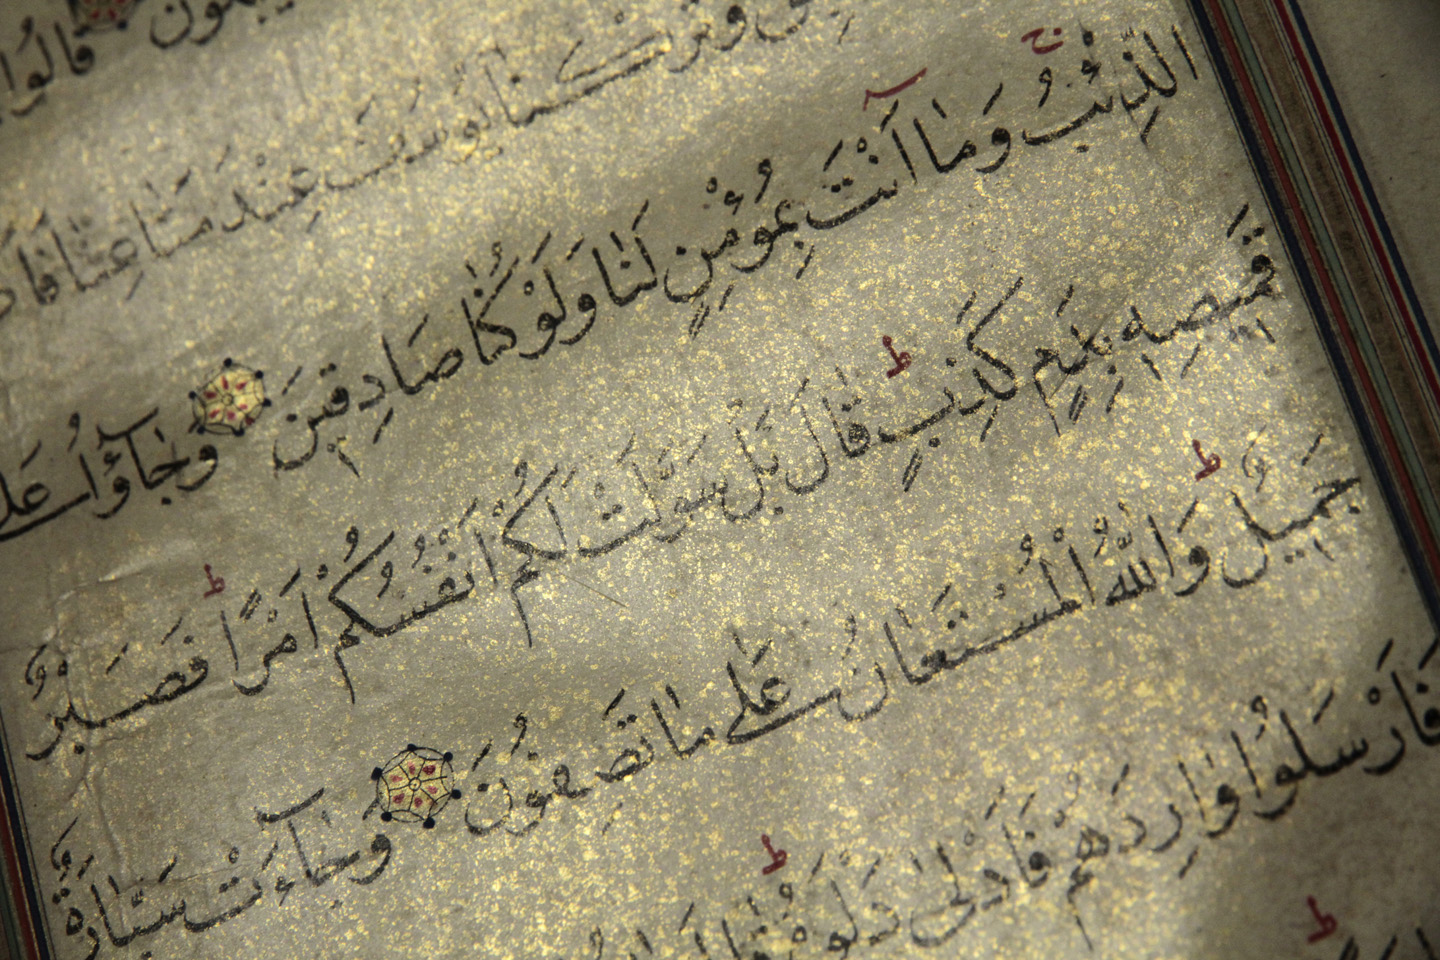 قَالُوا
وَتَرَكْنَا يُوسُفَ عِنْدَ مَتَاعِنَا فَاَ
الذِّئْبُ وَمَا اَنْتَ بِمُؤْمِنٍ لَنَا وَلَوْ كُنَّا صَادِقِينَ وَجَآؤُا عَلٰى
قَمِيصِهٖ بِدَمٍ كَذِبٍ ط قَالَ بَلْ سَوَّلَتْ لَكُمْ اَنْفُسُكُمْ اَمْرًا ط فَصَبْرٌ
جَمِيلٌ ط وَاللّٰهُ الْمُسْتَعَانُ عَلٰى مَا تَصِفُونَ وَجَآءَتْ سَيَّارَةٌ
فَاَرْسَلُوا وَارِدَهُمْ فَاَدْلٰى دَلْوَهُ ط